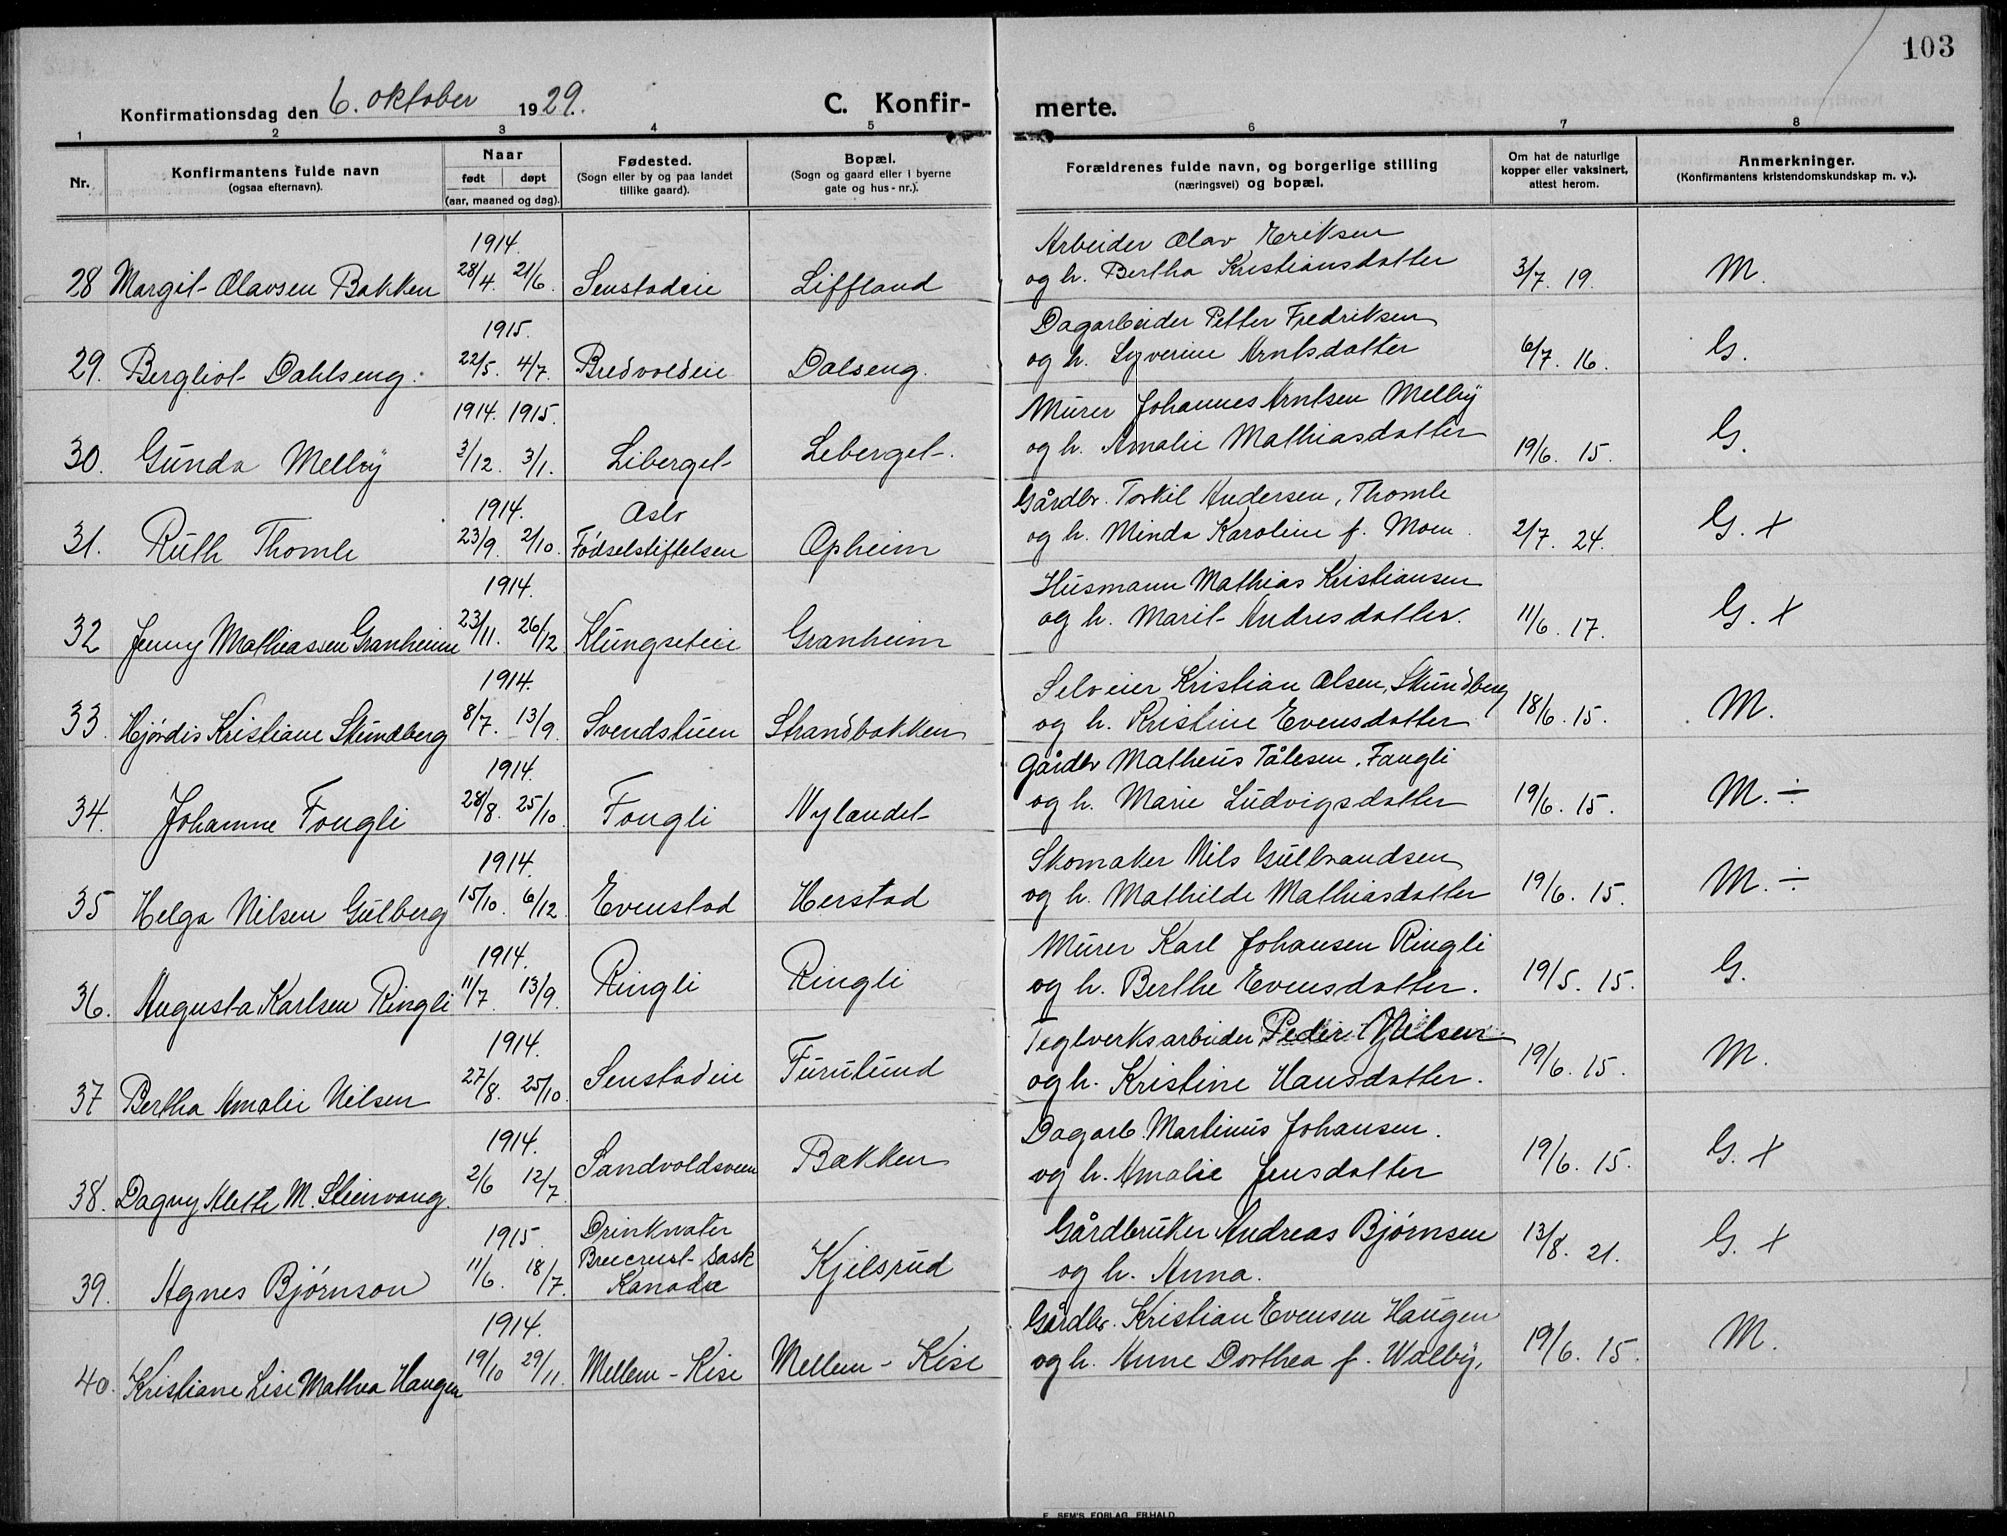 103
Konfirmationsdag den 6. oktober 1929.
C. Konfir-
merte.
1 2 3 4 5 6 7 8
Nr.
Konfirmantens fulde navn
(ogsaa efternavn).
Naar
født døpt
(aar, maaned og dag).
Fødested.
(Sogn eller by og paa landet
tillike gaard).
Bopæl.
(Sogn og gaard eller i byerne
gate og hus-nr.).
Forældrenes fulde navn, og borgerlige stilling
(næringsvei) og bopæl.
Om hat de naturlige
kopper eller vaksinert,
attest herom.
Anmerkninger.
(Konfirmantens kristendomskundskap m. v.).
1914. Arbeider Olav Eriksen
28 Margit Olavsen Bakken 28/4. 21/6. Senstadeie Liffland og h. Bertha Kristiansdatter 3/7. 19. M.
1915. Dagarbeider Petter Fredriksen
29. Bergliot Dahlseng. 22/5. 4/7. Bredvoldeie Dalseng. og h. Syverine Arntsdatter 6/7. 16. G.
1914. 1915. Murer Johannes Arntsen Melby
30. Gunda Melby 3/12. 3/1. Liberget Leberget. og h. Amalie Mathiasdatter 19/6. 15. G.
1914. Oslo Gårdbr. Torkil Andersen, Thomle
31. Ruth Thomle 23/9. 2/10. Fødselstiftelsen Opheim og h. Minda Karoline f. Moen. 2/7. 24. G. +
1914. Husmann Mathias Kristiansen
32 Jenny Mathiassen Granheim 23/11. 26/12 Klungseteie Granheim og h. Marit Andresdatter. 11/6. 17. G. +
1914. Selveier Kristian Olsen, Skundberg
33. Hjørdis Kristiane Skundberg 8/7. 13/9. Svendstuen Strandbakken og h. Kristine Evensdatter 18/6. 15. M.
1914. Gårdbr Matheus Tålesen, Fangli
34. Johanne Fongli 28/8. 25/10. Fongli Nylandet og h. Marie Ludvigsdatter 19/6. 15. M. ÷
1914. Skomaker Nils Gulbrandsen
35 Helga Nilsen Gulberg 15/10. 6/12. Evenstad Herstad og h. Mathilde Mathiasdatter 19/6. 15. M. ÷
1914. Murer Karl Johansen Ringli
36. Augusta Karlsen Ringli 11/7. 13/9. Ringli Ringli og h. Berthe Evensdatter. 19/5. 15. G.
1914. Teglverksarbeider Peder Nilsen
37 Bertha Amalie Nilsen 27/8. 25/10. Senstadeie Furulund og h. Kristine Hansdatter. 19/6. 15. M.
1914. Dagarb. Martinus Johansen.
38. Dagny Alette M. Steinvang. 2/6 12/7. Sandvoldsveen Bakken og h. Amalie Jensdatter 19/6. 15. G. +
1915. Drinkwater Gårdbruker Andreas Bjørnsen
39. Agnes Bjørnson 11/6. 18/7. Sask Kanada Kjelsrud og h. Anna. 13/8. 21. G. +
1914. Gårdbr. Kristian Evensen Haugen
40. Kristiane Lise Mathea Haugen 19/10 29/11. Mellem-Kise Mellem-Kise og h. Anne Dorthea f. Walby. 19/6. 15. M.
E. SEM'S FORLAG, FR.HALD